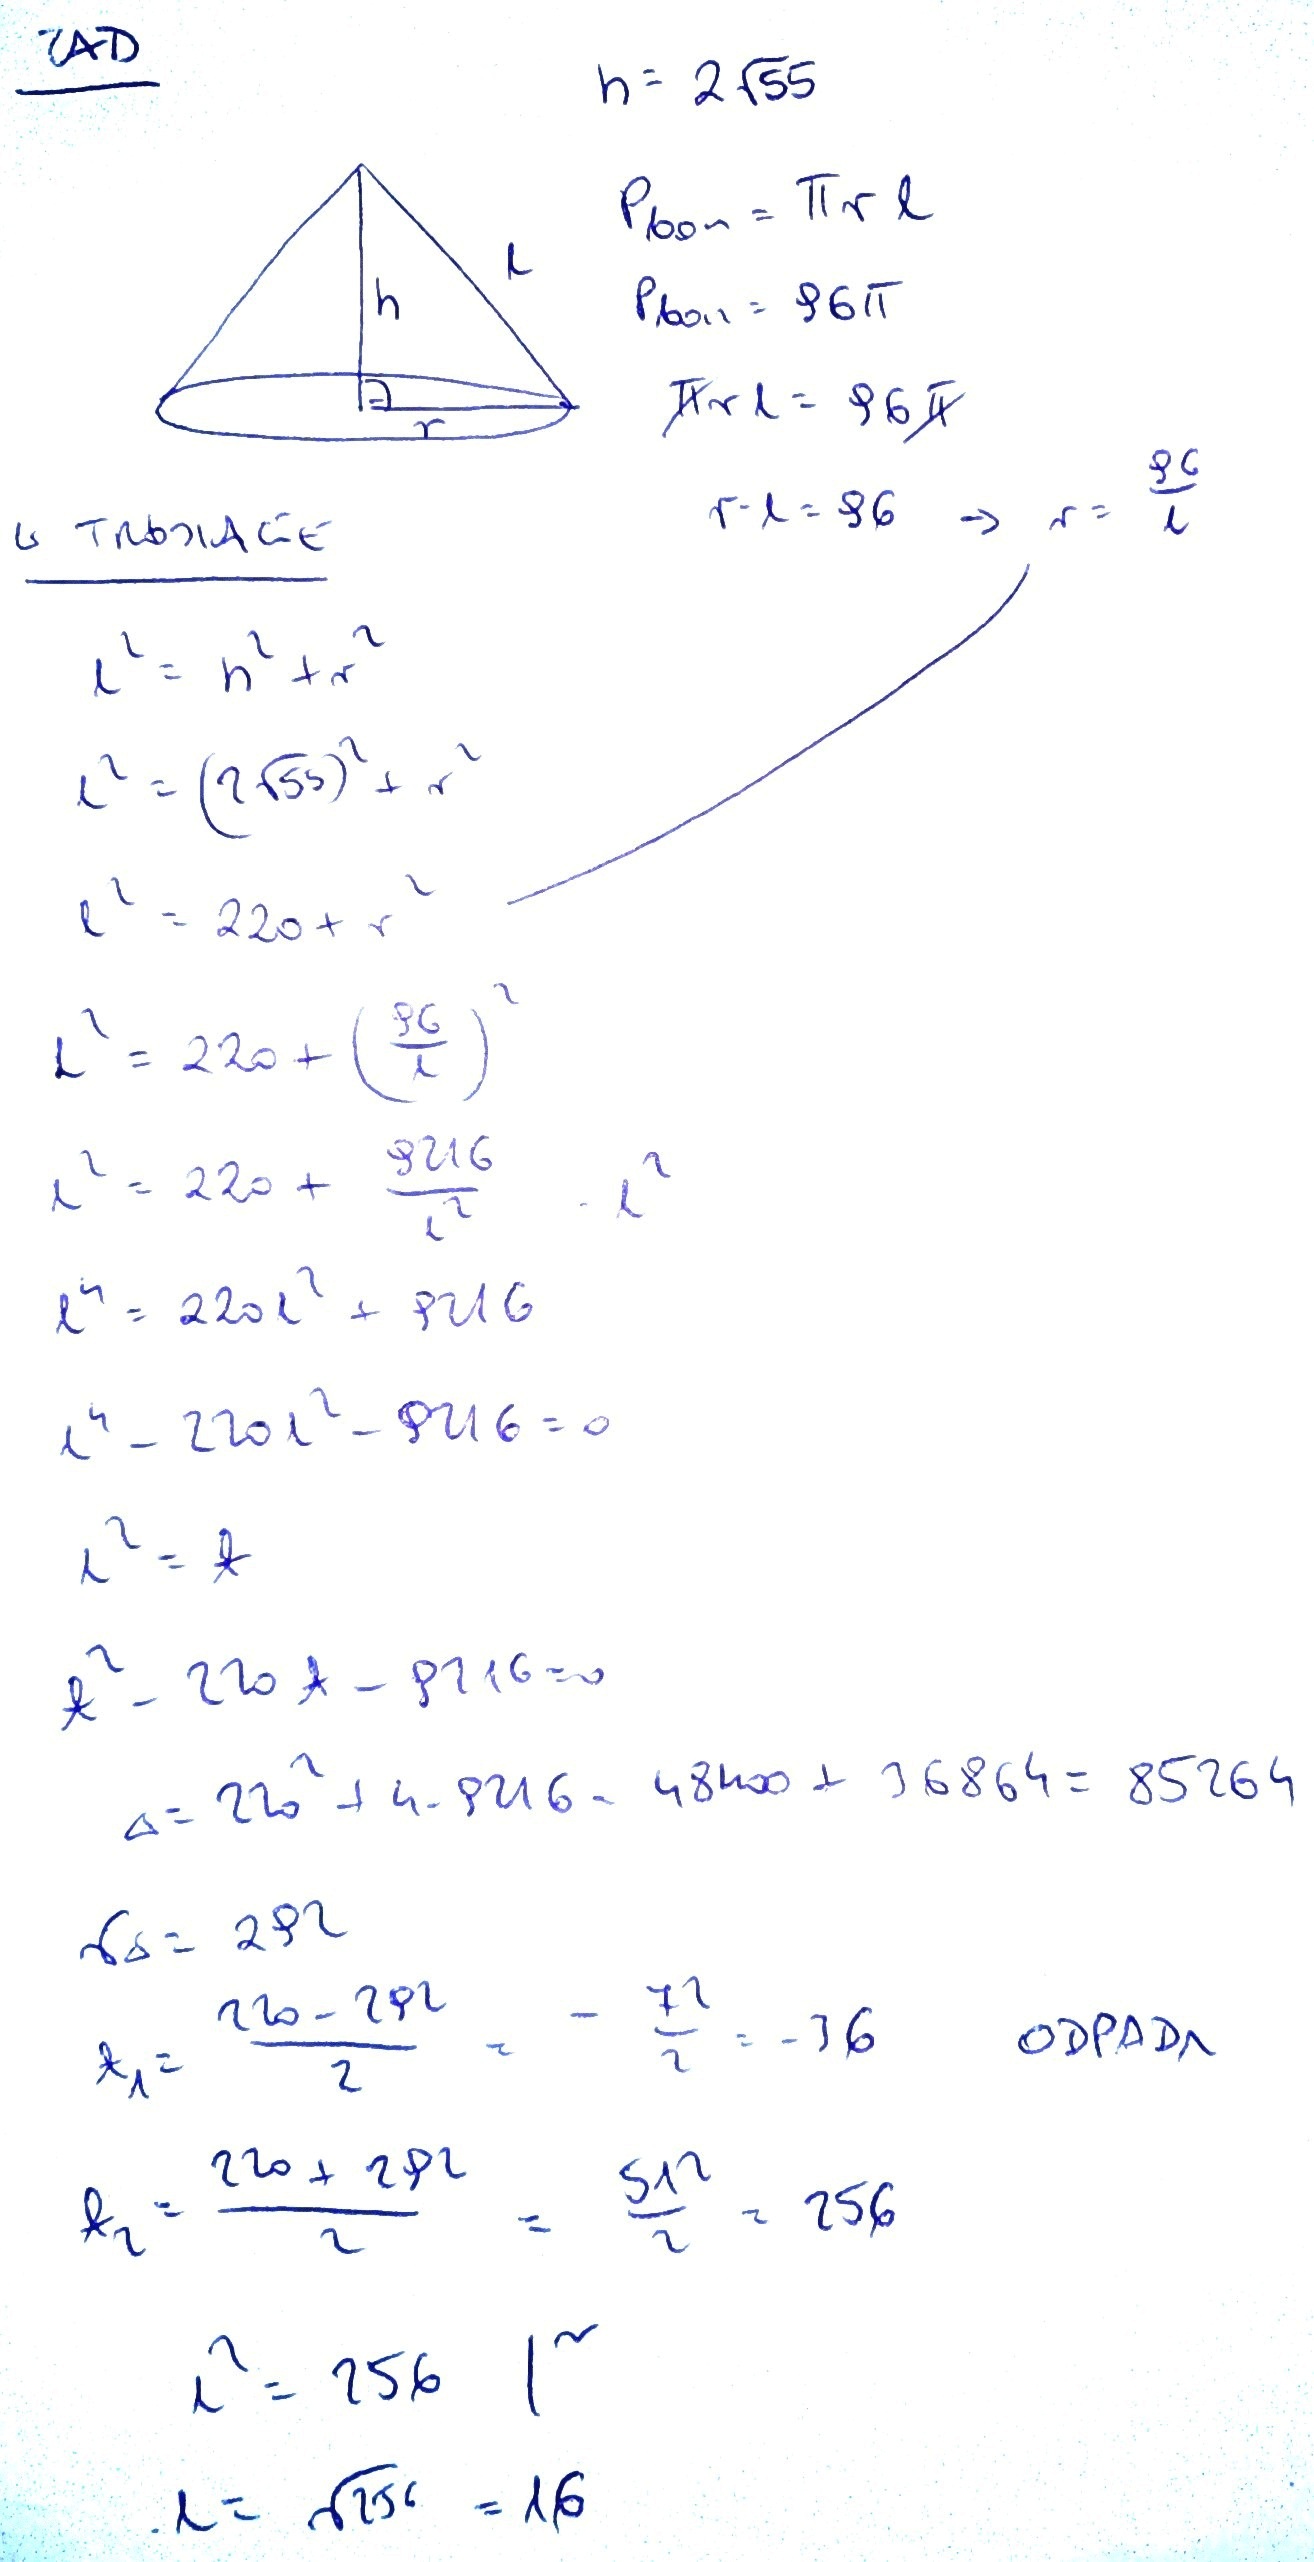 ZAD
h = 2√55
P_bocz = πrl
P_bocz = 96π
πrl = 96π
r·l = 96 → r = 96/l
l
h
r
↳ TRÓJKĄCIE
l² = h² + r²
l² = (2√55)² + r²
l² = 220 + r²
l² = 220 + (96/l)²
l² = 220 + 9216/l² · l²
l⁴ = 220l² + 9216
l⁴ - 220l² - 9216 = 0
l² = t
t² - 220t - 9216 = 0
Δ = 220² + 4·9216 = 48400 + 36864 = 85264
√Δ = 292
t₁ = (220 - 292)/2 = -72/2 = -36 ODPADA
t₂ = (220 + 292)/2 = 512/2 = 256
l² = 256 |√
l = √256 = 16